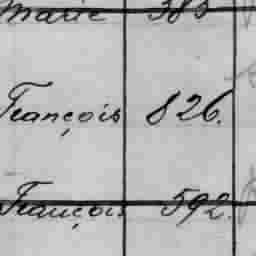 Marie 383
François 826.
François 592.